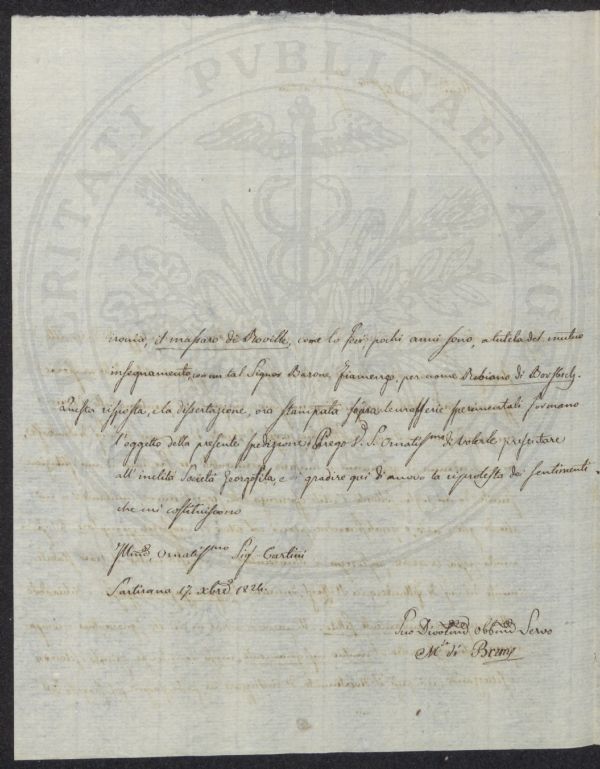 PROSPERITATI PVBLICAE AVG
ironia, il massaro di Roville, come lo feci pochi anni sono, a tutela del mutuo
insegnamento, con un tal Signor Barone, per nome Robiano di
Questa risposta, e la dissertazione, ora stampata sopra le sperimentali formano
l'oggetto della presente spedizione. Prego V. S. Ornatissma di volerle presentare
all'inclita Società Georgofila, e gradire qui di nuovo la riprotesta dei sentimenti
che mi costituiscono
Illmo, Ornatissmo Sigr Cartini
Sartirana 17. Xbre 1824.
Suo Divotmo Obbmo Servo
Mse di Breme